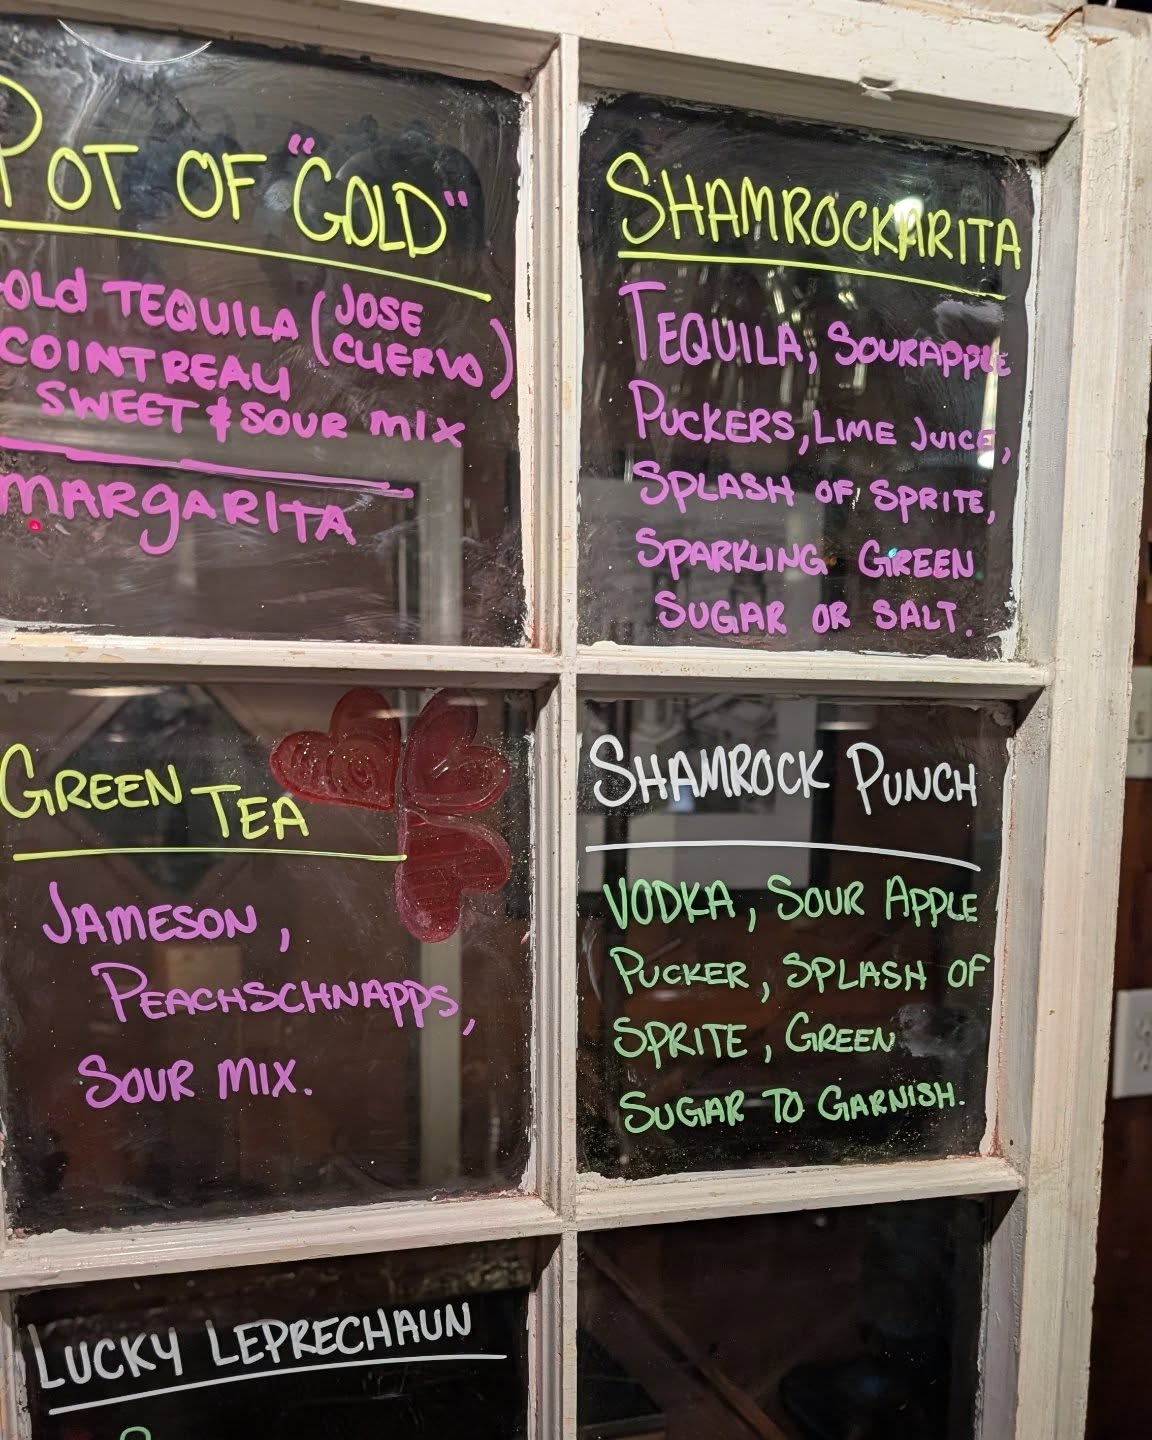 POT OF "GOLD"
OLD TEQUILA (JOSE CUERVO)
COINTREAU
SWEET & SOUR MIX
MARGARITA
SHAMROCKARITA
TEQUILA, SOURAPPLE
PUCKERS, LIME JUICE,
SPLASH OF SPRITE,
SPARKLING GREEN
SUGAR OR SALT.
GREEN TEA
JAMESON,
PEACHSCHNAPPS,
SOUR MIX.
SHAMROCK PUNCH
VODKA, SOUR APPLE
PUCKER, SPLASH OF
SPRITE, GREEN
SUGAR TO GARNISH.
LUCKY LEPRECHAUN